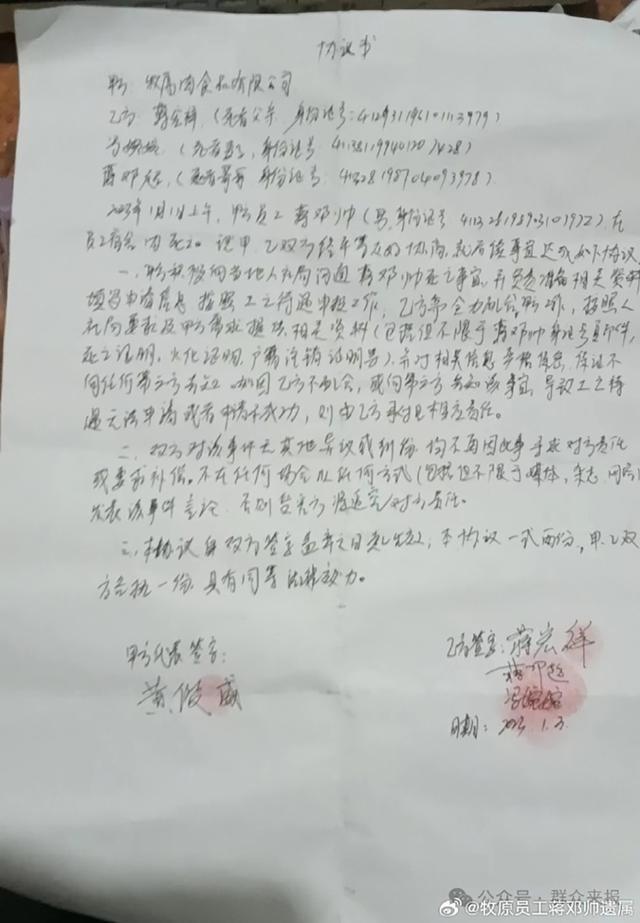 协议书
甲方：牧原肉食品有限公司
乙方：蒋宏祥（死者父亲 身份证号：
（死者妻子，身份证号
蒋邓超（死者哥哥 身份证号
2023年1月1日上午，甲方员工蒋邓帅（男，身份证号 在
员工宿舍内死亡。现甲、乙双方经平等友好协商，就后续事宜达成如下协议
一、甲方积极向当地人社局沟通蒋邓帅死亡事宜，并负责准备相关资料
填写申请信息，按照工亡待遇申报工作，乙方需全力配合甲方工作，按照人
社局要求及甲方需求提供相关资料（包括但不限于蒋邓帅身份证复印件，
死亡证明，火化证明，户籍注销证明等），并对相关信息严格保密，保证不
向任何第三方告知。如因乙方不配合，或向第三方告知该事宜，导致工亡待
遇无法申请或者申请不成功，则由乙方承担相应责任。
二、双方对该事件无其他异议或纠纷，均不再因此事寻求对方责任
或要求补偿。不在任何场合以任何方式（包括但不限于媒体，杂志，网络）
发表该事件言论，否则 对方责任。
三、本协议自双方签字盖章之日起生效，本协议一式两份，甲、乙双
方各执一份，具有同等法律效力。
甲方代表签字：
黄俊威
乙方签字：蒋宏祥
蒋邓超
日期：2023.1.3.
公众号·群众来报
@牧原员工蒋邓帅遗属